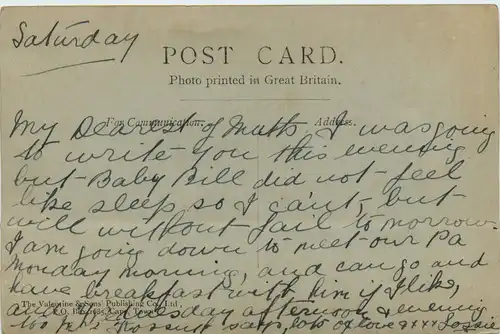 Saturday
POST CARD.
Photo printed in Great Britain.
For Communication. Address.
My Dearest of Mutts. I was going
to write you this evening
but Baby Bill did not feel
like sleep so I can't, but
will without fail to morrow.
I am going down to meet our Pa
Monday morning, and can go and
have breakfast with him if I like,
The Valentine & Sons Publishing Co., Ltd.,
and Tuesday afternoon & evening
P.O. Box 1685, Cape Town.
too says lots of love xxx